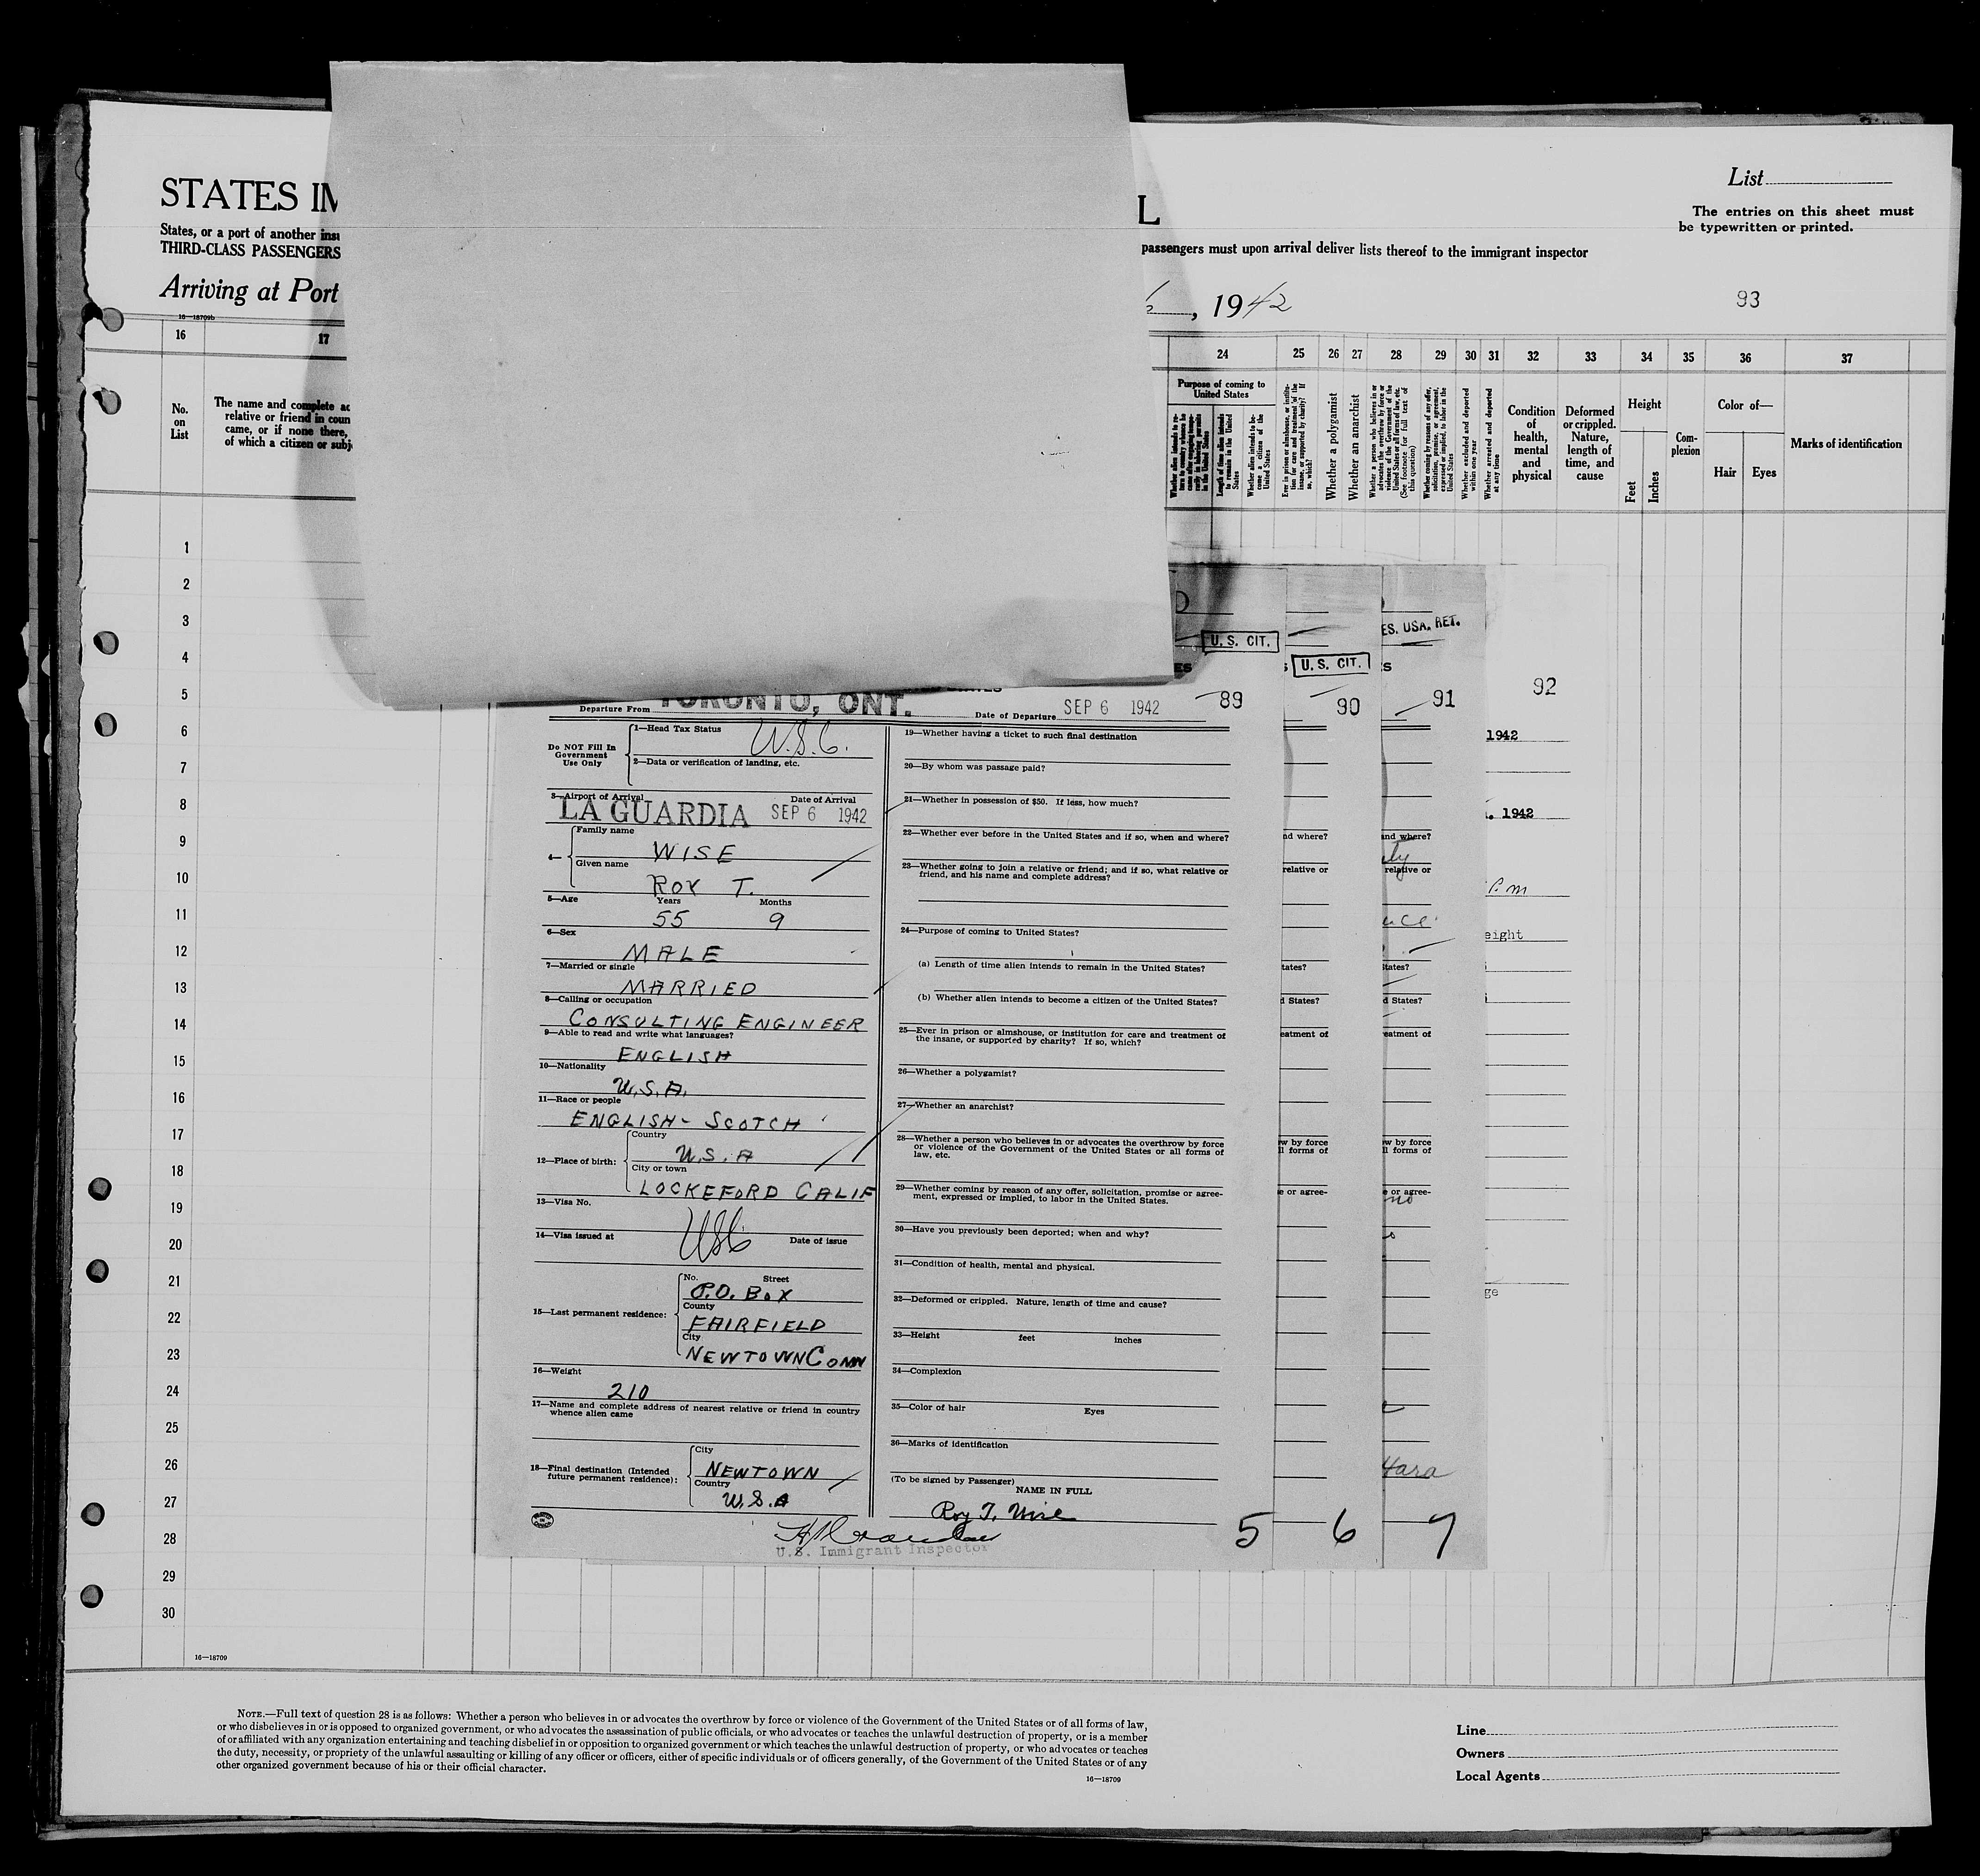 STATES IM
L
List
The entries on this sheet must
be typewritten or printed.
States, or a port of another insu
THIRD-CLASS PASSENGERS
passengers must upon arrival deliver lists thereof to the immigrant inspector
Arriving at Port
, 1942
93
16—18709b
16 17 24 25 26 27 28 29 30 31 32 33 34 35 36 37
No. on List
The name and complete ad
relative or friend in coun
came, or if none there,
of which a citizen or subj
Purpose of coming to
United States
Whether a polygamist
Whether an anarchist
Whether excluded and deported
within one year
Whether arrested and deported
at any time
Condition
of
health,
mental
and
physical
Deformed
or crippled.
Nature,
length of
time, and
cause
Height
Feet
Inches
Com-
plexion
Color of—
Hair
Eyes
Marks of identification
1
2
3
4
5
6
7
8
9
10
11
12
13
14
15
16
17
18
19
20
21
22
23
24
25
26
27
28
29
30
16—18709
U. S. CIT.
U. S. CIT.
ES. USA. RET.
89
90
91
92
TORONTO, ONT.
Departure From
Date of Departure SEP 6 1942
Do NOT Fill In
Government
Use Only
1—Head Tax Status U.S.C.
2—Data or verification of landing, etc.
3—Airport of Arrival Date of Arrival
LA GUARDIA SEP 6 1942
4—
Family name
WISE
Given name
ROY T.
5—Age Years Months
55 9
6—Sex
MALE
7—Married or single
MARRIED
8—Calling or occupation
CONSULTING ENGINEER
9—Able to read and write what languages?
ENGLISH
10—Nationality
U.S.A.
11—Race or people
ENGLISH - SCOTCH
12—Place of birth:
Country
U.S.A
City or town
LOCKEFORD CALIF
13—Visa No.
USC
14—Visa issued at Date of issue
15—Last permanent residence:
No. Street
P.O. BOX
County
FAIRFIELD
City
NEWTOWN CONN
16—Weight
210
17—Name and complete address of nearest relative or friend in country
whence alien came
18—Final destination (Intended
future permanent residence):
City
NEWTOWN
Country
U.S.A
19—Whether having a ticket to such final destination
20—By whom was passage paid?
21—Whether in possession of $50. If less, how much?
22—Whether ever before in the United States and if so, when and where?
23—Whether going to join a relative or friend; and if so, what relative or
friend, and his name and complete address?
24—Purpose of coming to United States?
(a) Length of time alien intends to remain in the United States?
(b) Whether alien intends to become a citizen of the United States?
25—Ever in prison or almshouse, or institution for care and treatment of
the insane, or supported by charity? If so, which?
26—Whether a polygamist?
27—Whether an anarchist?
28—Whether a person who believes in or advocates the overthrow by force
or violence of the Government of the United States or all forms of
law, etc.
29—Whether coming by reason of any offer, solicitation, promise or agree-
ment, expressed or implied, to labor in the United States.
30—Have you previously been deported; when and why?
31—Condition of health, mental and physical.
32—Deformed or crippled. Nature, length of time and cause?
33—Height feet inches
34—Complexion
35—Color of hair Eyes
36—Marks of identification
(To be signed by Passenger)
NAME IN FULL
Roy T. Wise
U.S. Immigrant Inspector
5
6
7
nd where?
relative or
tates?
d States?
eatment of
w by force
ll forms of
e or agree-
and where?
relative or
tates?
d States?
eatment of
w by force
ll forms of
e or agree-
no
Hara
1942
. 1942
P.M
eight
ge
NOTE.—Full text of question 28 is as follows: Whether a person who believes in or advocates the overthrow by force or violence of the Government of the United States or of all forms of law,
or who disbelieves in or is opposed to organized government, or who advocates the assassination of public officials, or who advocates or teaches the unlawful destruction of property, or is a member
of or affiliated with any organization entertaining and teaching disbelief in or opposition to organized government or which teaches the unlawful destruction of property, or who advocates or teaches
the duty, necessity, or propriety of the unlawful assaulting or killing of any officer or officers, either of specific individuals or of officers generally, of the Government of the United States or of any
other organized government because of his or their official character.
16—18709
Line
Owners
Local Agents